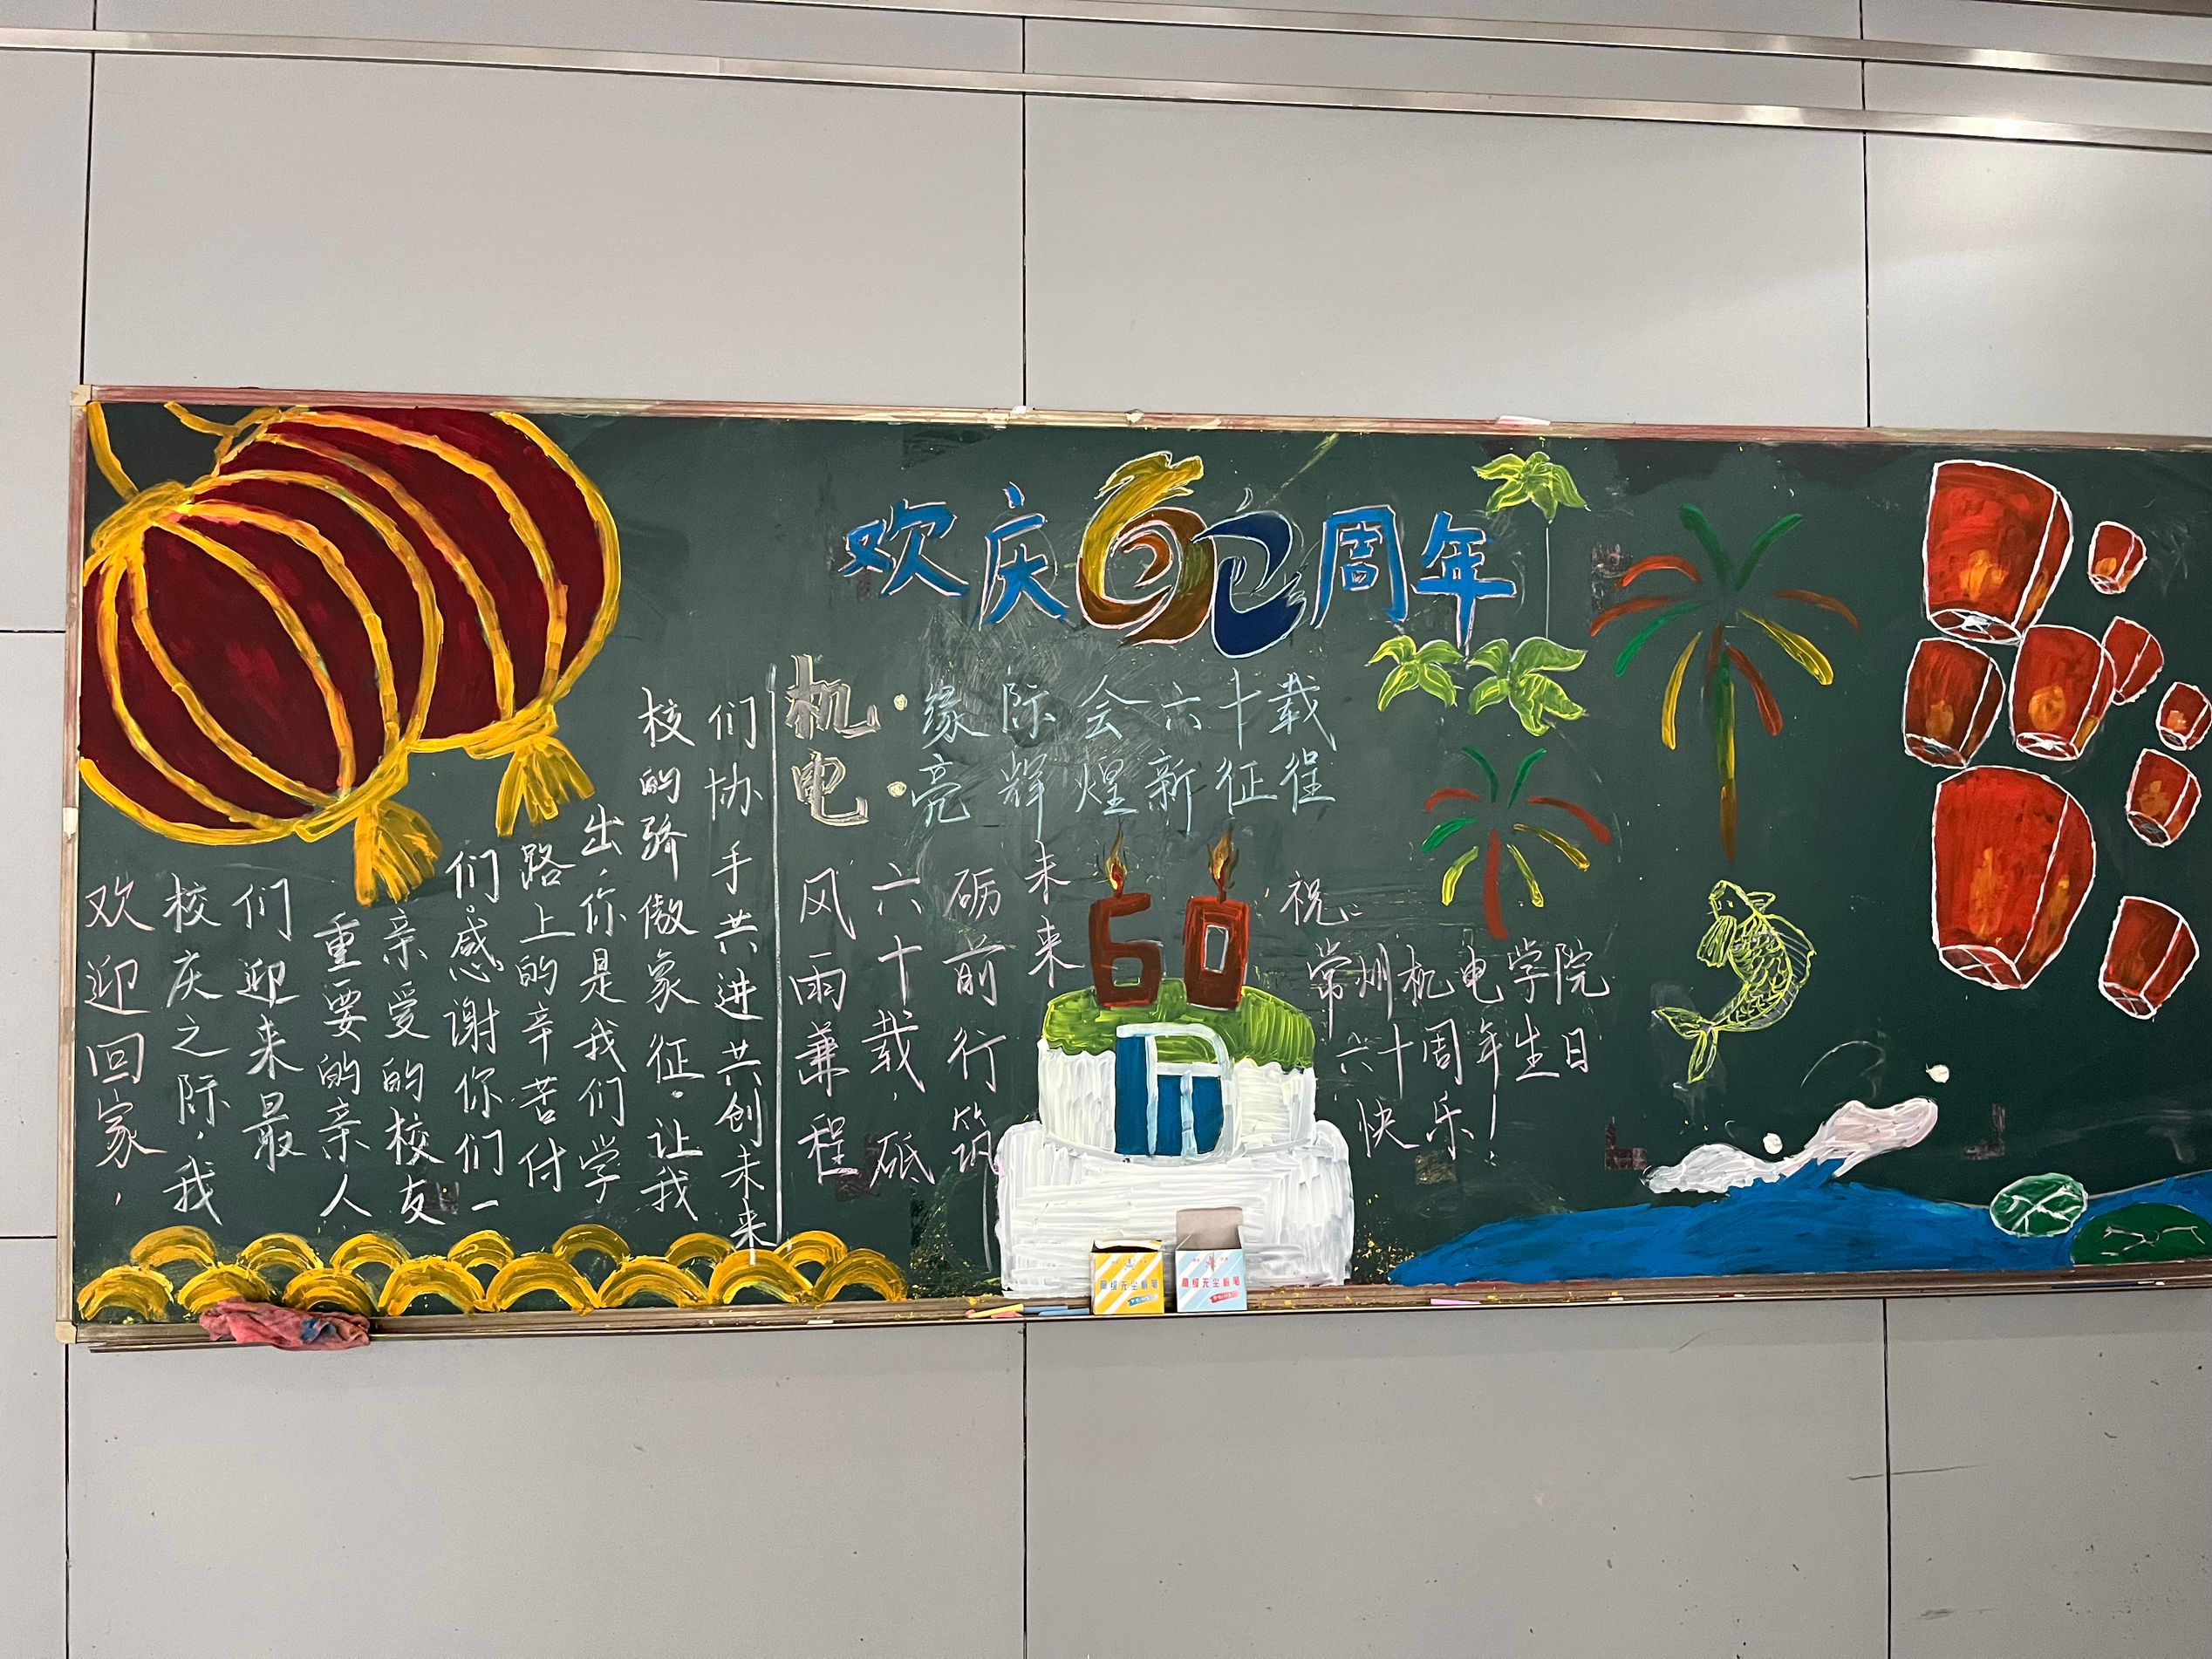 欢庆60周年
欢迎回家，
校庆之际，我
们迎来最
重要的亲人
亲爱的校友
们。感谢你们一
路上的辛苦付
出，你是我们学
校的骄傲象征。让我
们协手共进共创未来
机·缘际会六十载
电·亮辉煌新征程
风雨兼程
六十载，砥
砺前行筑
未来
60
祝：
常州机电学院
六十周年生日
快乐！
高级无尘粉笔
高级无尘粉笔